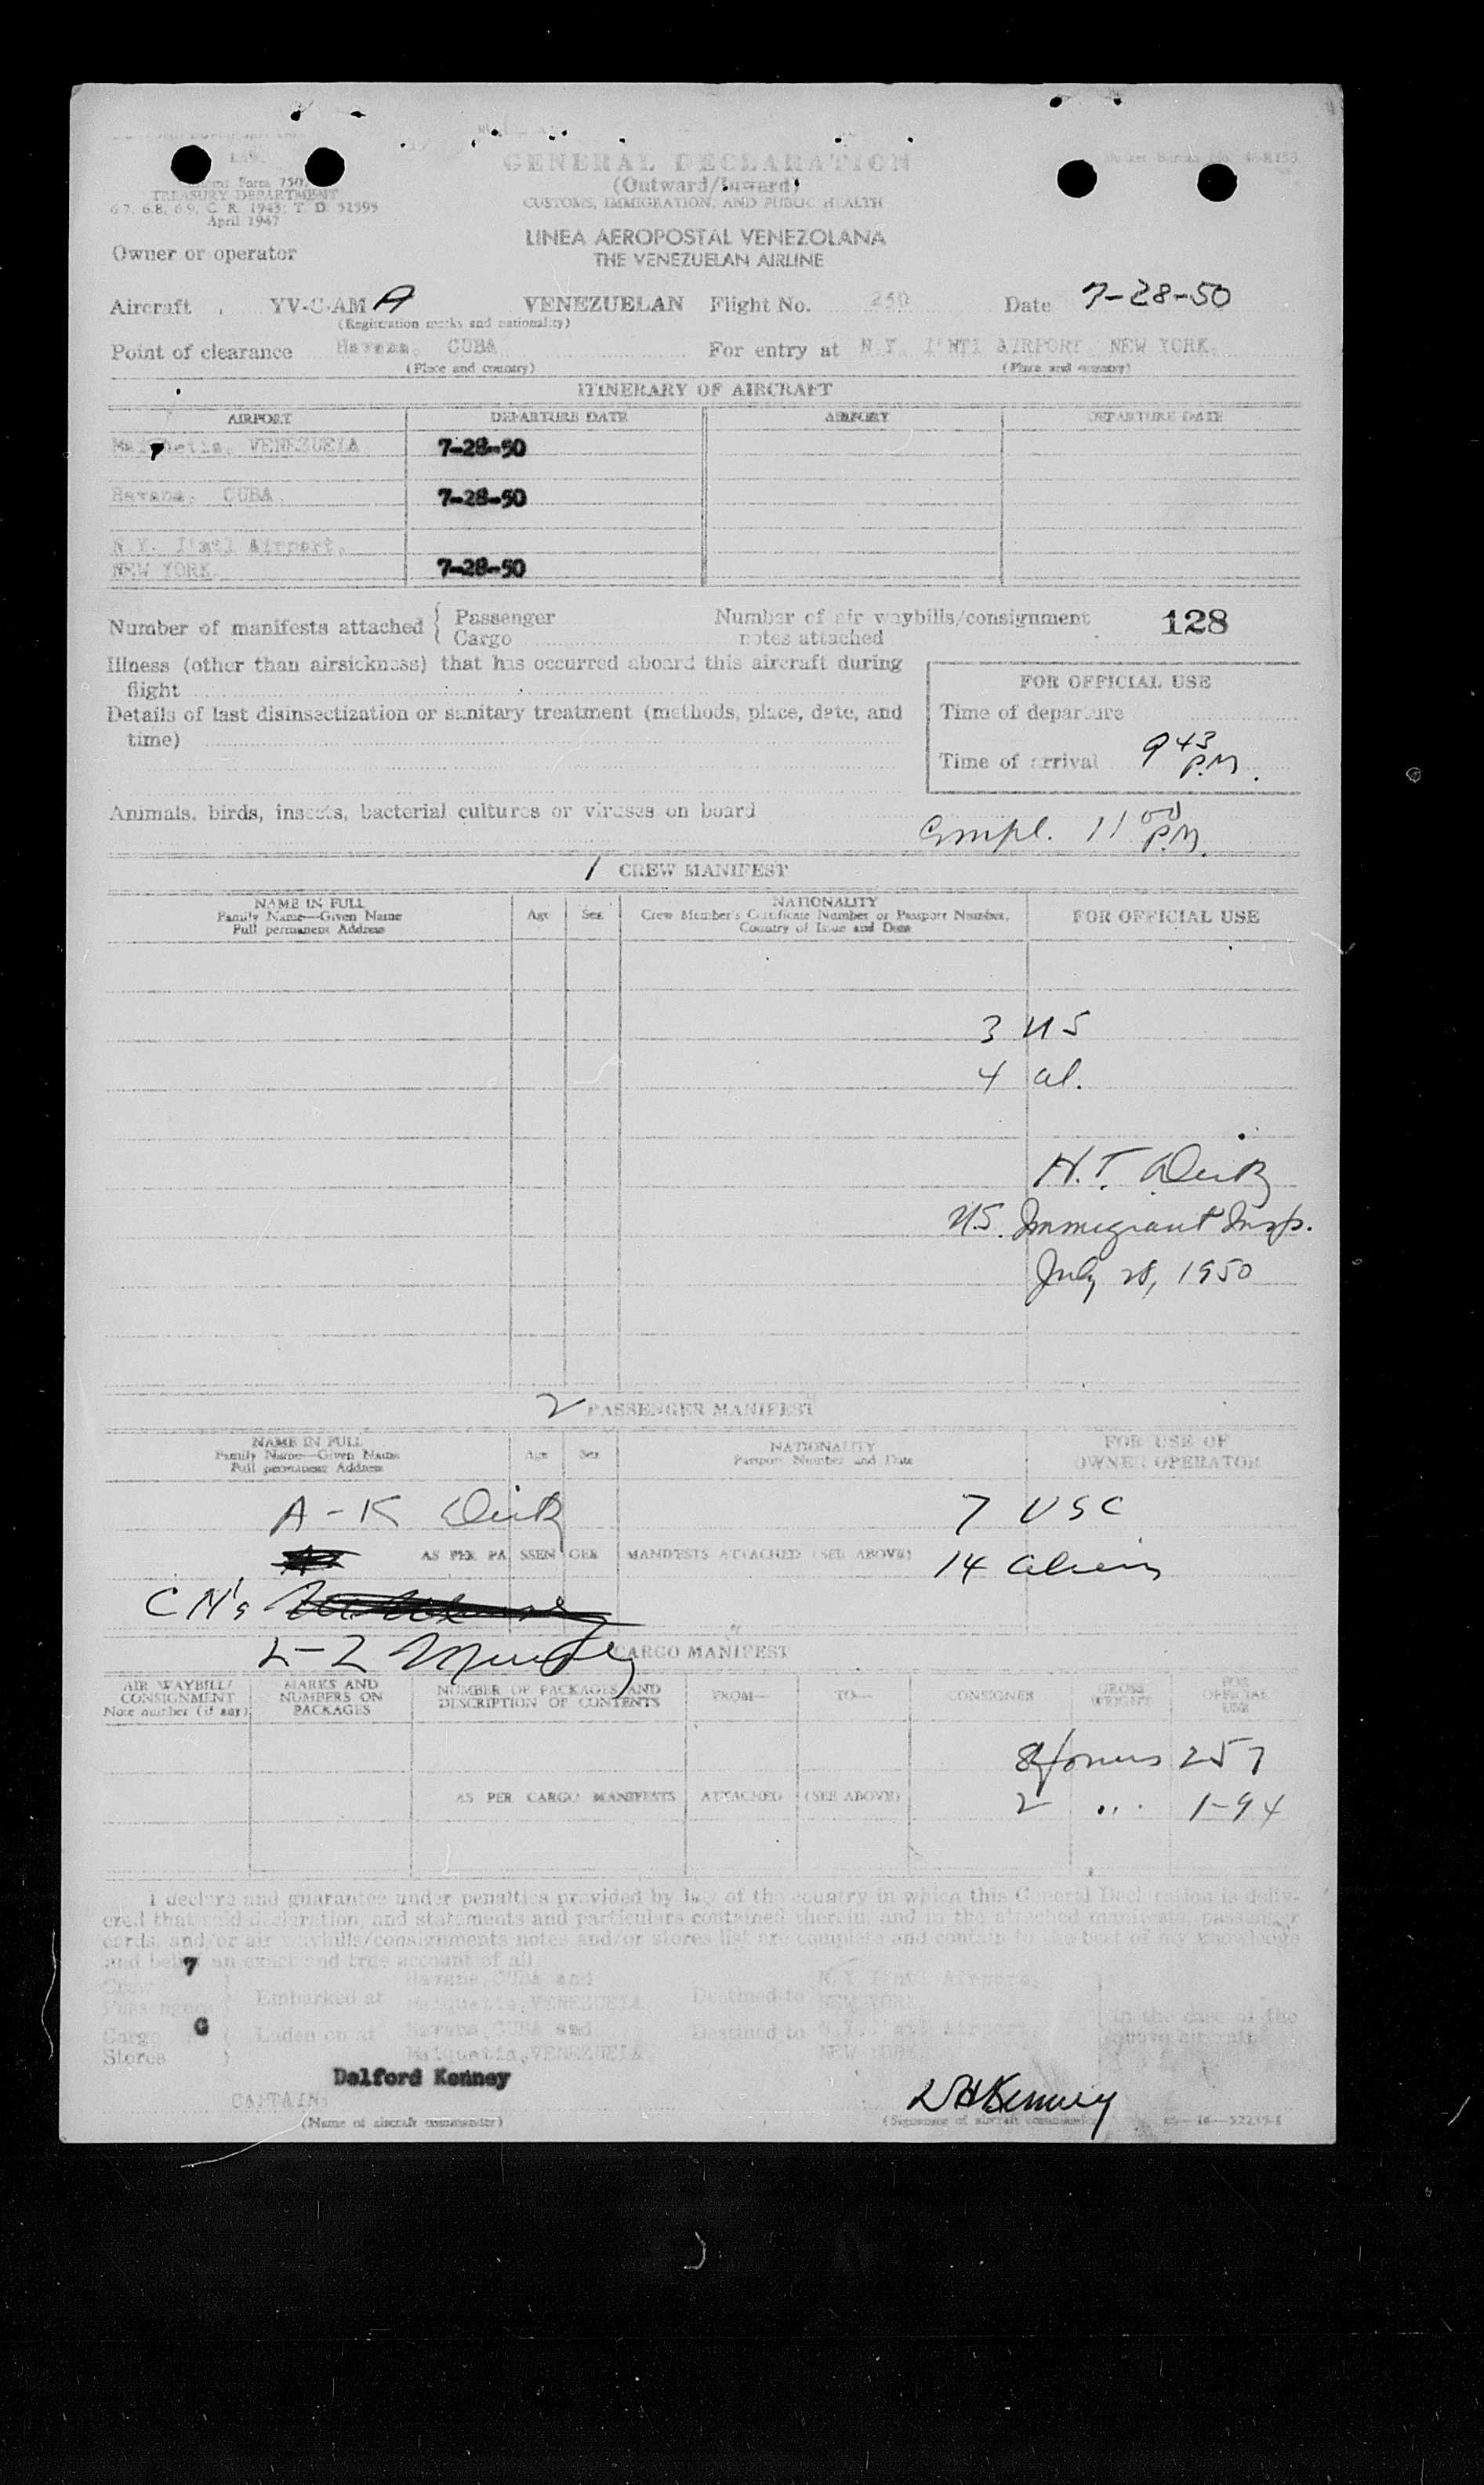 GENERAL DECLARATION
(Outward/Inward)
CUSTOMS, IMMIGRATION, AND PUBLIC HEALTH
Customs Form 7507
TREASURY DEPARTMENT
6.7, 6.8, 6.9, C. R. 1943; T. D. 51595
April 1947
LINEA AEROPOSTAL VENEZOLANA
THE VENEZUELAN AIRLINE
Owner or operator
Aircraft YV-C-AM A VENEZUELAN Flight No. 250 Date 7-28-50
(Registration marks and nationality)
Point of clearance Havana, CUBA For entry at N.Y. I'NTL AIRPORT NEW YORK.
(Place and country) (Place and country)
ITINERARY OF AIRCRAFT
AIRPORT DEPARTURE DATE AIRPORT DEPARTURE DATE
Maiquetia, VENEZUELA 7-28-50
Havana, CUBA. 7-28-50
N.Y. I'ntl Airport,
NEW YORK. 7-28-50
Number of manifests attached { Passenger Number of air waybills/consignment 128
Cargo notes attached
Illness (other than airsickness) that has occurred aboard this aircraft during
flight
FOR OFFICIAL USE
Details of last disinsectization or sanitary treatment (methods, place, date, and
time)
Time of departure
Time of arrival 9 43 P.M.
Animals, birds, insects, bacterial cultures or viruses on board
Compl. 11 00 P.M.
1 CREW MANIFEST
NAME IN FULL
Family Name—Given Name
Full permanent Address
Age Sex
NATIONALITY
Crew Member's Certificate Number or Passport Number,
Country of Issue and Date
FOR OFFICIAL USE
3 US
4 al.
H.T.
U.S. Immigrant Insp.
July 28, 1950
2 PASSENGER MANIFEST
NAME IN FULL
Family Name—Given Name
Full permanent Address
Age Sex
NATIONALITY
Passport Number and Date
FOR USE OF
OWNER OPERATOR
A-K
7 USC
AS PER PASSENGER MANIFESTS ATTACHED (SEE ABOVE)
14 aliens
L-Z Murphy
CARGO MANIFEST
AIR WAYBILL/
CONSIGNMENT
Note number (if any)
MARKS AND
NUMBERS ON
PACKAGES
NUMBER OF PACKAGES AND
DESCRIPTION OF CONTENTS
FROM— TO— CONSIGNEE
GROSS
WEIGHT
FOR
OFFICIAL
USE
8 forms 257
AS PER CARGO MANIFESTS ATTACHED (SEE ABOVE)
2 " 1-94
I declare and guarantee under penalties provided by law of the country in which this General Declaration is deliv-
ered that said declaration, and statements and particulars contained therein, and in the attached manifests, passenger
cards, and/or air waybills/consignments notes and/or stores list are complete and contain to the best of my knowledge
and belief an exact and true account of all
Crew 7
Passengers
Embarked at Havana, CUBA and
Maiquetia, VENEZUELA
Destined to N.Y. I'ntl Airport,
NEW YORK
Cargo G
Stores
Laden on at Havana, CUBA and
Maiquetia, VENEZUELA
Destined to N.Y. I'ntl Airport,
NEW YORK
in the case of the
above aircraft
Delford Kenney
CAPTAIN:
(Name of aircraft commander)
(Signature of aircraft commander)